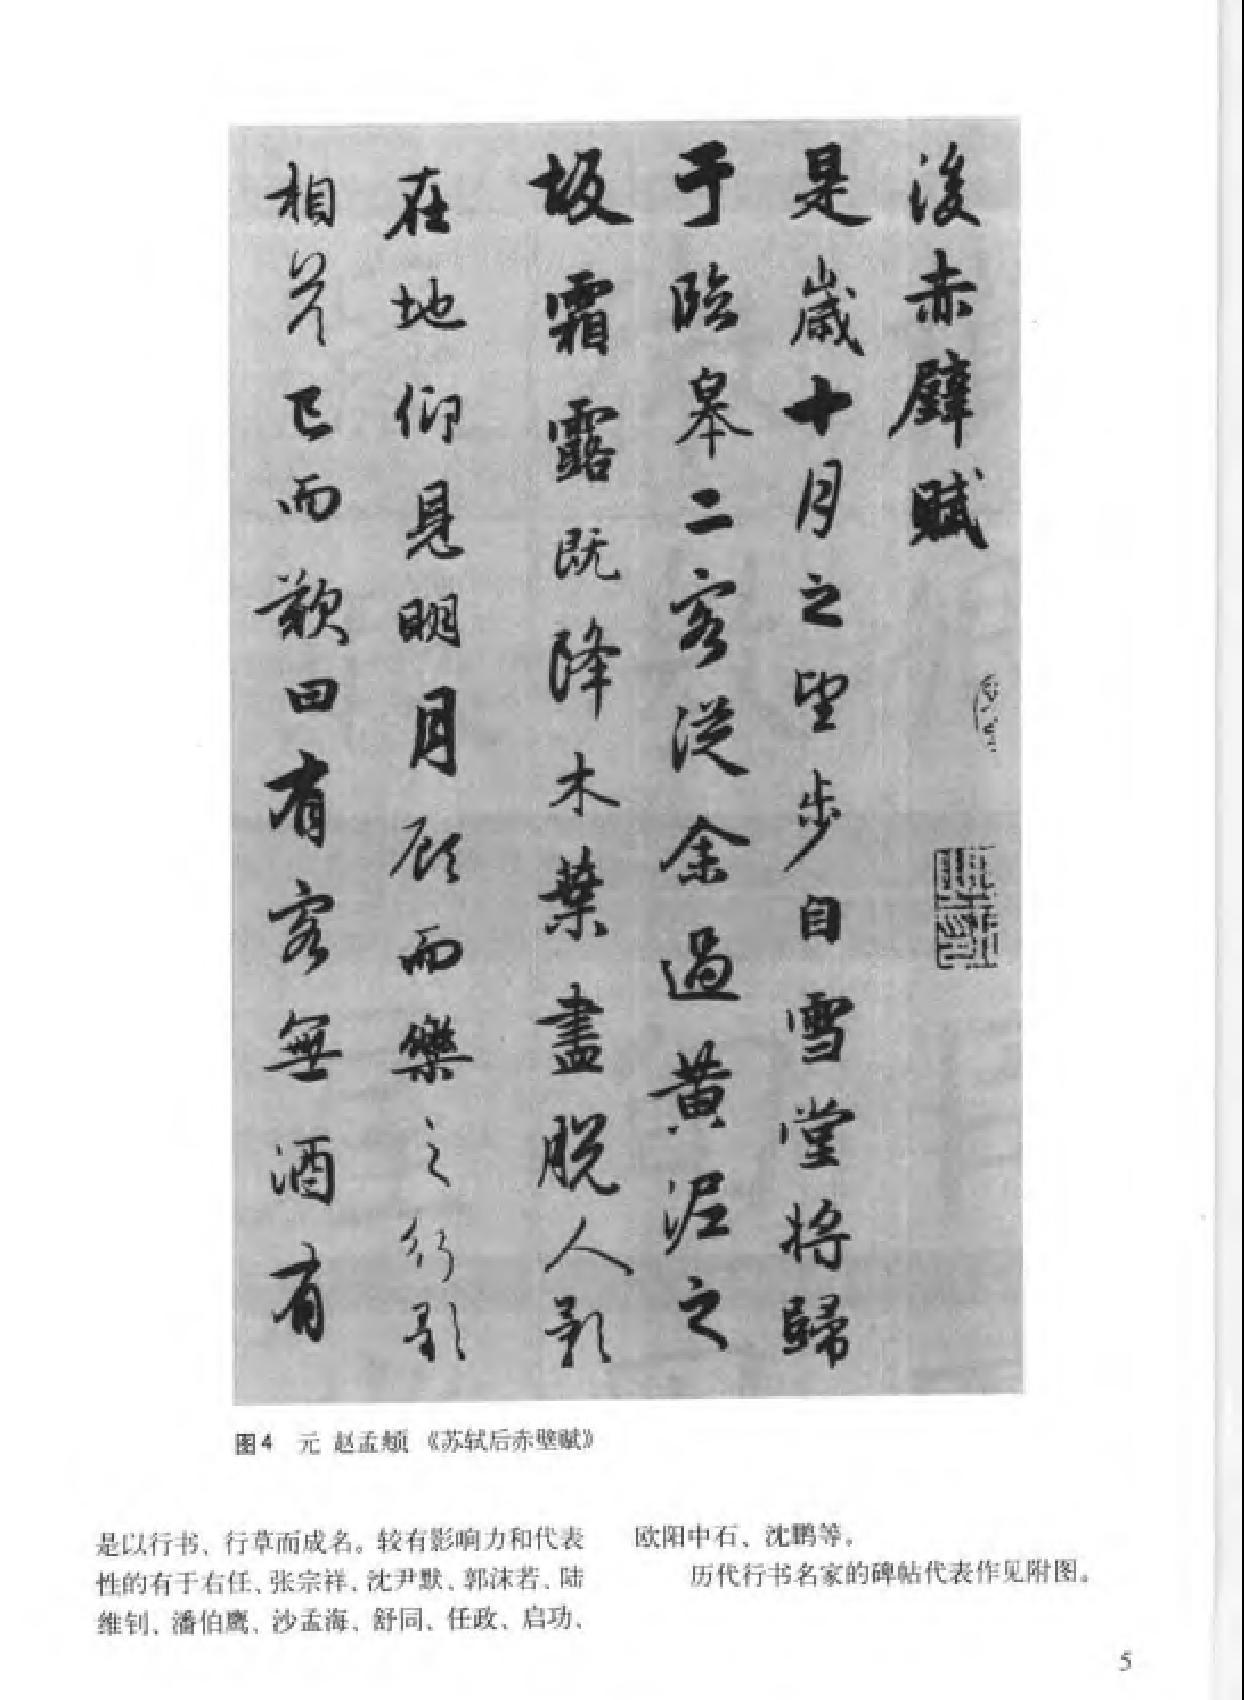 後赤壁賦
是歲十月之望步自雪堂將歸
于臨皋二客從余過黃泥之
坂霜露既降木葉盡脫人影
在地仰見明月顧而樂之行歌
相答已而歎曰有客無酒有
图4 元 赵孟頫 《苏轼后赤壁赋》
是以行书、行草而成名。较有影响力和代表
性的有于右任、张宗祥、沈尹默、郭沫若、陆
维钊、潘伯鹰、沙孟海、舒同、任政、启功、
欧阳中石、沈鹏等。
历代行书名家的碑帖代表作见附图。
5